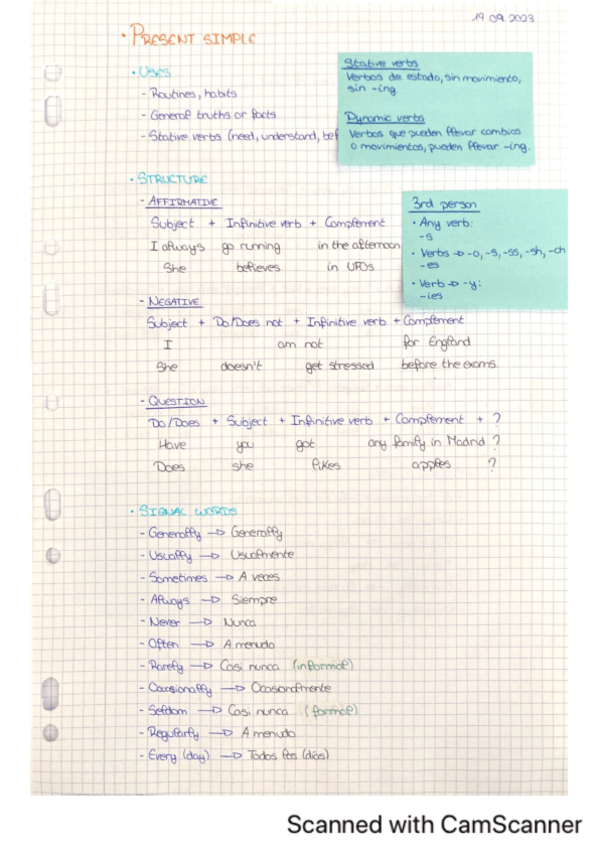 19.09.2023
· PRESENT SIMPLE
· USES
- Routines, habits
- General truths or facts
- Stative verbs (need, understand, bef
Stative verbs
Verbos de estado, sin movimiento,
sin -ing.
Dynamic verbs
Verbos que pueden llevar cambios
o movimientos, pueden llevar -ing.
· STRUCTURE
- AFFIRMATIVE
Subject + Infinitive verb + Complement
I always go running in the afternoon
She believes in UFOs
3rd person
· Any verb:
-s
· Verbs → -o, -s, -ss, -sh, -ch
-es
· Verb → -y:
-ies
- NEGATIVE
Subject + Do/Does not + Infinitive verb + Complement
I am not for England
She doesn't get stressed before the exams.
- QUESTION
Do/Does + Subject + Infinitive verb + Complement + ?
Have you got any family in Madrid ?
Does she likes apples ?
· SIGNAL WORDS
- Generally → Generally
- Usually → Usualmente
- Sometimes → A veces
- Always → Siempre
- Never → Nunca
- Often → A menudo
- Rarely → Casi nunca (informal)
- Occasionally → Ocasionalmente
- Seldom → Casi nunca (formal)
- Regularly → A menudo
- Every (day) → Todos los (días)
Scanned with CamScanner